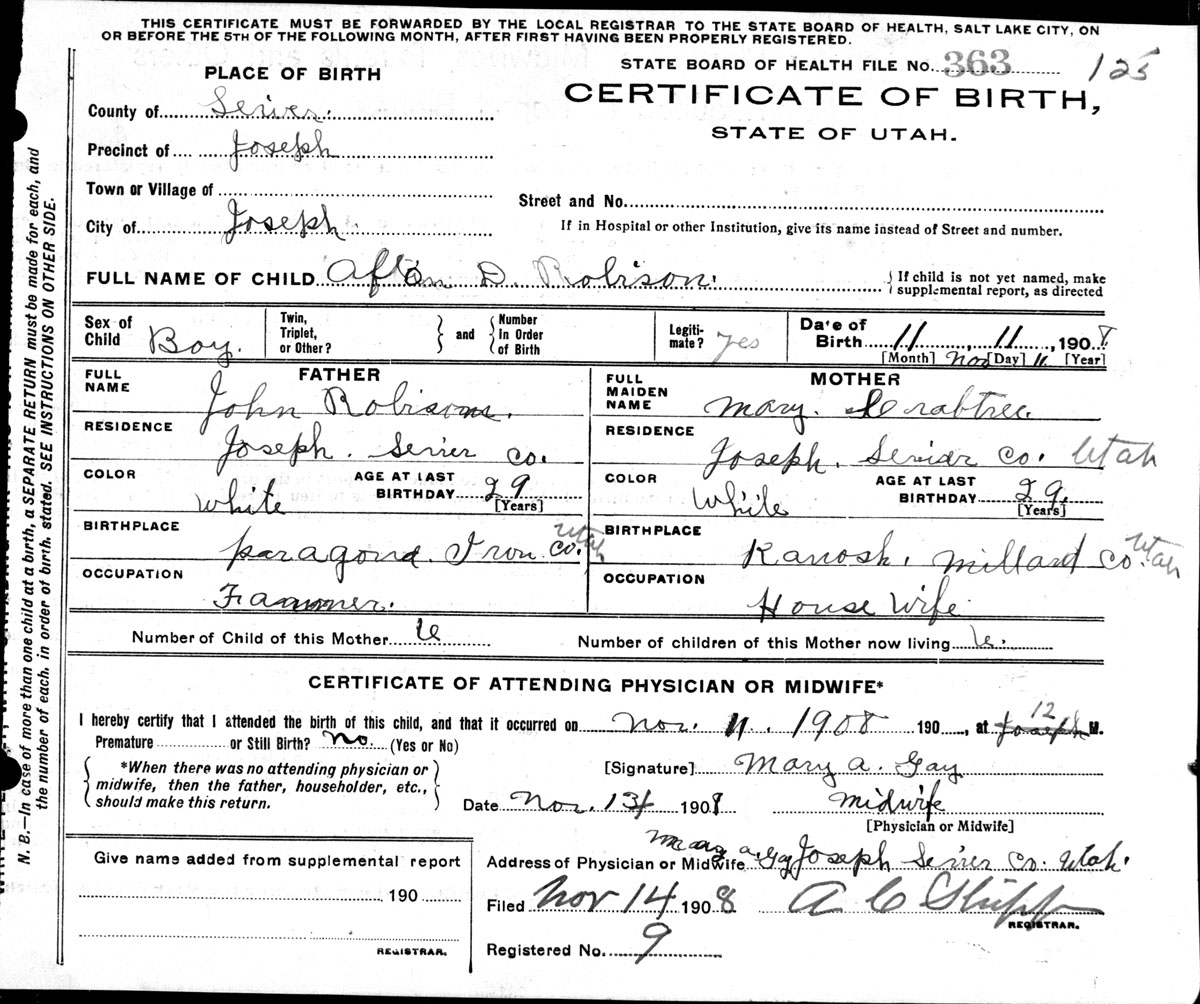 THIS CERTIFICATE MUST BE FORWARDED BY THE LOCAL REGISTRAR TO THE STATE BOARD OF HEALTH, SALT LAKE CITY, ON
OR BEFORE THE 5TH OF THE FOLLOWING MONTH, AFTER FIRST HAVING BEEN PROPERLY REGISTERED.
STATE BOARD OF HEALTH FILE No. 363 125
PLACE OF BIRTH
CERTIFICATE OF BIRTH,
STATE OF UTAH.
County of Sevier.
Precinct of Joseph
Town or Village of
Street and No.
City of Joseph.
If in Hospital or other Institution, give its name instead of Street and number.
FULL NAME OF CHILD Afton D. Robison.
If child is not yet named, make
supplemental report, as directed
Sex of Child Boy.
Twin, Triplet, or Other?
and
Number In Order of Birth
Legiti-mate? yes
Date of Birth 11, 11, 1908
[Month] Nov [Day] 11 [Year]
FATHER
FULL NAME John Robison.
RESIDENCE Joseph. Sevier Co.
COLOR White
AGE AT LAST BIRTHDAY 29
[Years]
BIRTHPLACE paragona. Iron Co. Utah
OCCUPATION Farmer.
MOTHER
FULL MAIDEN NAME Mary. Crabtree.
RESIDENCE Joseph. Sevier Co. Utah
COLOR White
AGE AT LAST BIRTHDAY 29.
[Years]
BIRTHPLACE Kanosh. Millard Co. Utah
OCCUPATION House Wife
Number of Child of this Mother
Number of children of this Mother now living
CERTIFICATE OF ATTENDING PHYSICIAN OR MIDWIFE*
I hereby certify that I attended the birth of this child, and that it occurred on Nov. 11. 1908 190 , at Joseph 12 M.
Premature or Still Birth? No. (Yes or No)
*When there was no attending physician or
midwife, then the father, householder, etc.,
should make this return.
[Signature] Mary A. Gay
Date Nov. 13 1908
midwife
[Physician or Midwife]
Address of Physician or Midwife Mary A. Gay Joseph Sevier Co. Utah.
Filed Nov 14 1908 A C Shipp
REGISTRAR.
Registered No. 9
Give name added from supplemental report
190
REGISTRAR.
N. B.—In case of more than one child at a birth, a SEPARATE RETURN must be made for each, and
the number of each, in order of birth, stated. SEE INSTRUCTIONS ON OTHER SIDE.